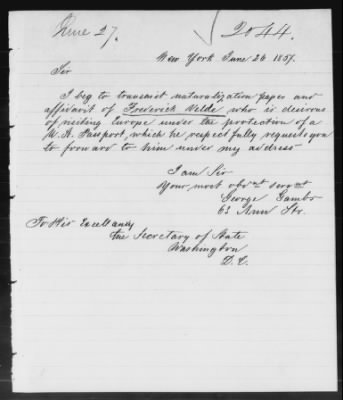 June 27.
2044.
New York June 26 1857.
Sir
I beg to transmit naturalization papers and
affidavit of Frederick Velde who is desirous
of visiting Europe under the protection of a
U. S. Passport, which he respectfully requests you
to forward to him under my address
I am Sir
Your most obdnt servant
George
63 Ann Str.
To His Excellency
the Secretary of State
Washington
D. C.